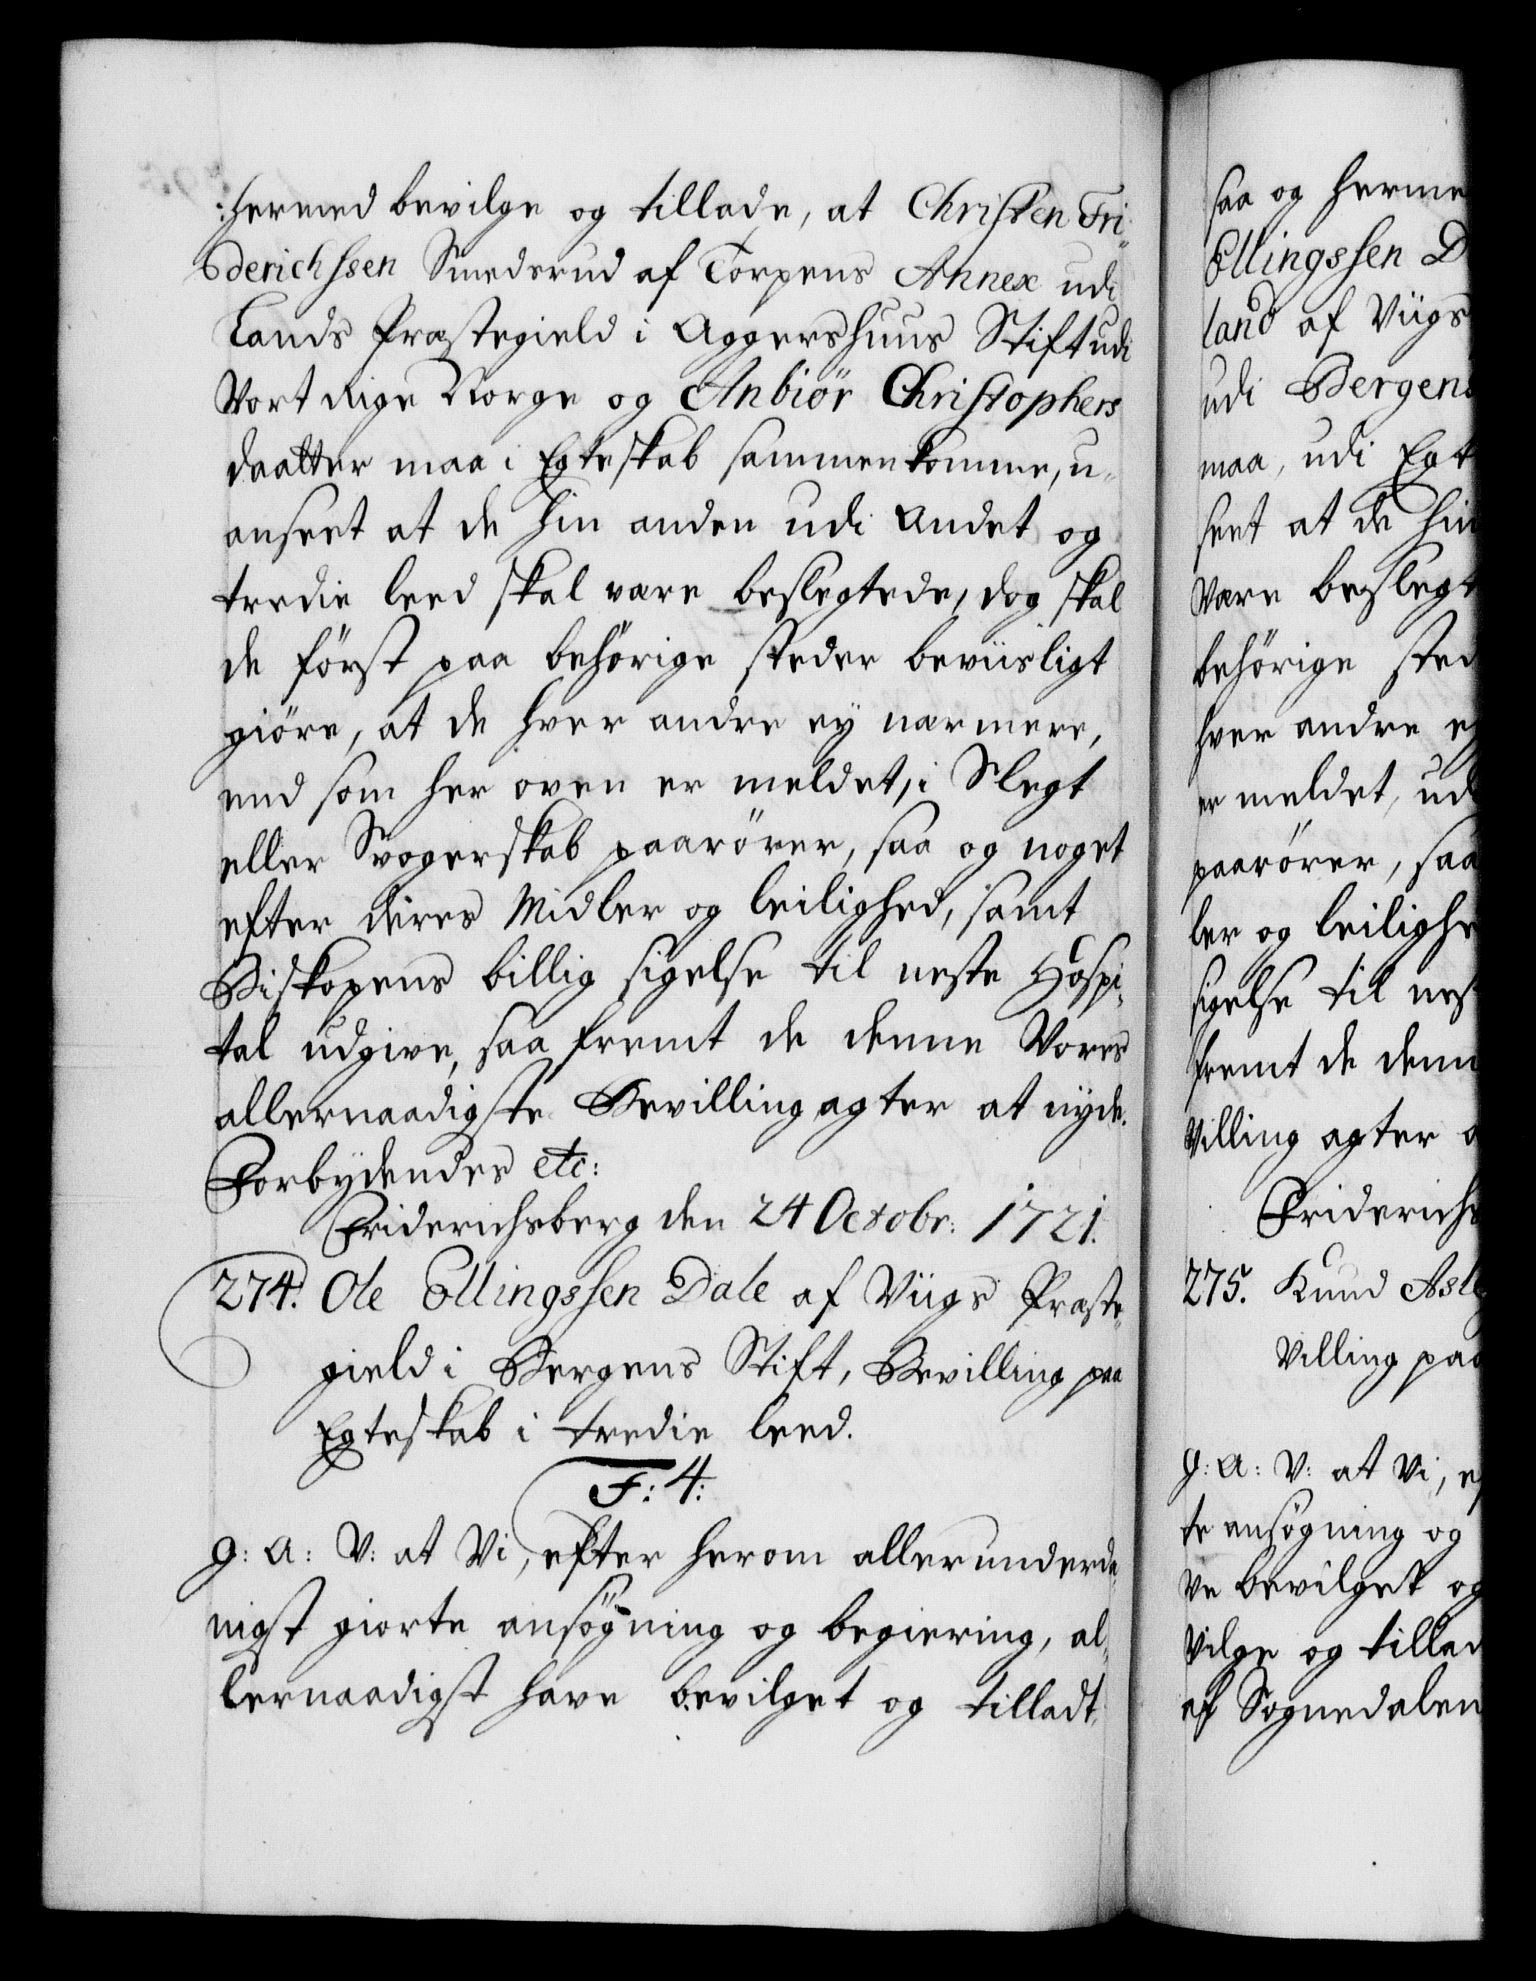 :hermed bevilge og tillade, at Christen Fri-
derichssen Smedsrud af Torpens Annex udi
Lands Præstegield i Aggershuus Stift udi
Vort Rige Norge og Anbiør Christophers
daatter maa i Egteskab sammenkomme, u-
anseet at de hin anden udi Andet og
tredie leed skal være beslegtede, dog skal
de först paa behörige steder beviisligt
giöre, at de hver andre ey nærmere,
end som her oven er meldet, i Slegt
eller Svogerskab paarörer, saa og noget
efter deres Midler og leilighed, samt
Biskopens billig sigelse til neste Hospi-
tal udgive, saa fremt de denne Vores
allernaadigste Bevilling agter at nyde.
Forbydendes etc:
Friderichsberg den 24 Octobr: 1721.
274. Ole Ellingssen Dale af Viigs Præste-
gield i Bergens Stift, Bevilling paa
Egteskab i tredie leed.
F: 4:
G: A: V: at Vi, efter herom allerunderdæ-
nigst giorte ansögning og begiering, al-
lernaadigst have bevilget og tilladt,
saa og herme
Ellingssen D
land af Viigs
udi Bergens
maa, udi Egt
seet at de hin
være beslegt
behörige sted
hver andre ey
er meldet, udi
paarörer, saa
ler og leilighe
sigelse til nes
fremt de denn
villing agter a
Friderichs
275. Knud Asle
villing paa
G: A: V: at Vi, ef
te ansögning og
ve bevilget og
vilge og tillad
af Sognedalen